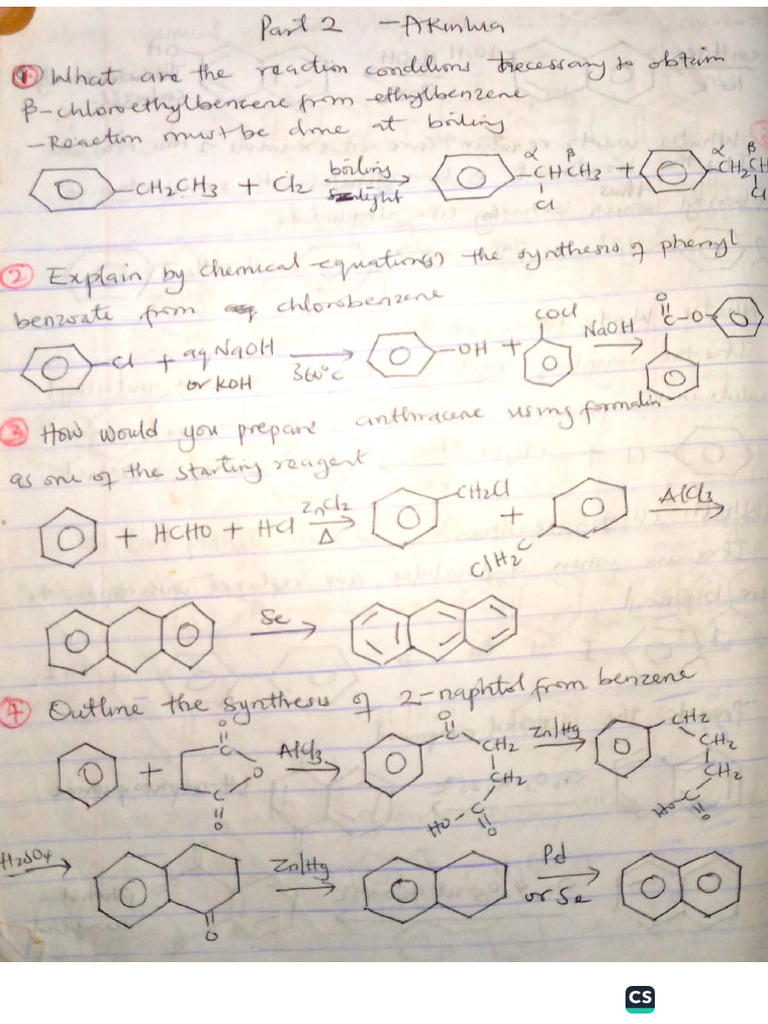 Part 2 - Akinlua
① What are the reaction conditions necessary to obtain
β-chloroethylbenzene from ethylbenzene
- Reaction must be done at boiling
CH2CH3 + Cl2 boiling sunlight α CH β CH3 Cl + α CH2 β CH Cl
② Explain by chemical equation(s) the synthesis of phenyl
benzoate from chlorobenzene
Cl + aq NaOH or KOH 360°C OH + COCl NaOH O C-O-
③ How would you prepare anthracene using formalin
as one of the starting reagent
+ HCHO + HCl ZnCl2 Δ CH2Cl + ClH2C AlCl3
Se
④ Outline the synthesis of 2-naphtol from benzene
+ O C O C O AlCl3 O C CH2 CH2 C HO O Zn/Hg CH2 CH2 CH2 C HO O
H2SO4 O Zn/Hg Pd or Se
CS